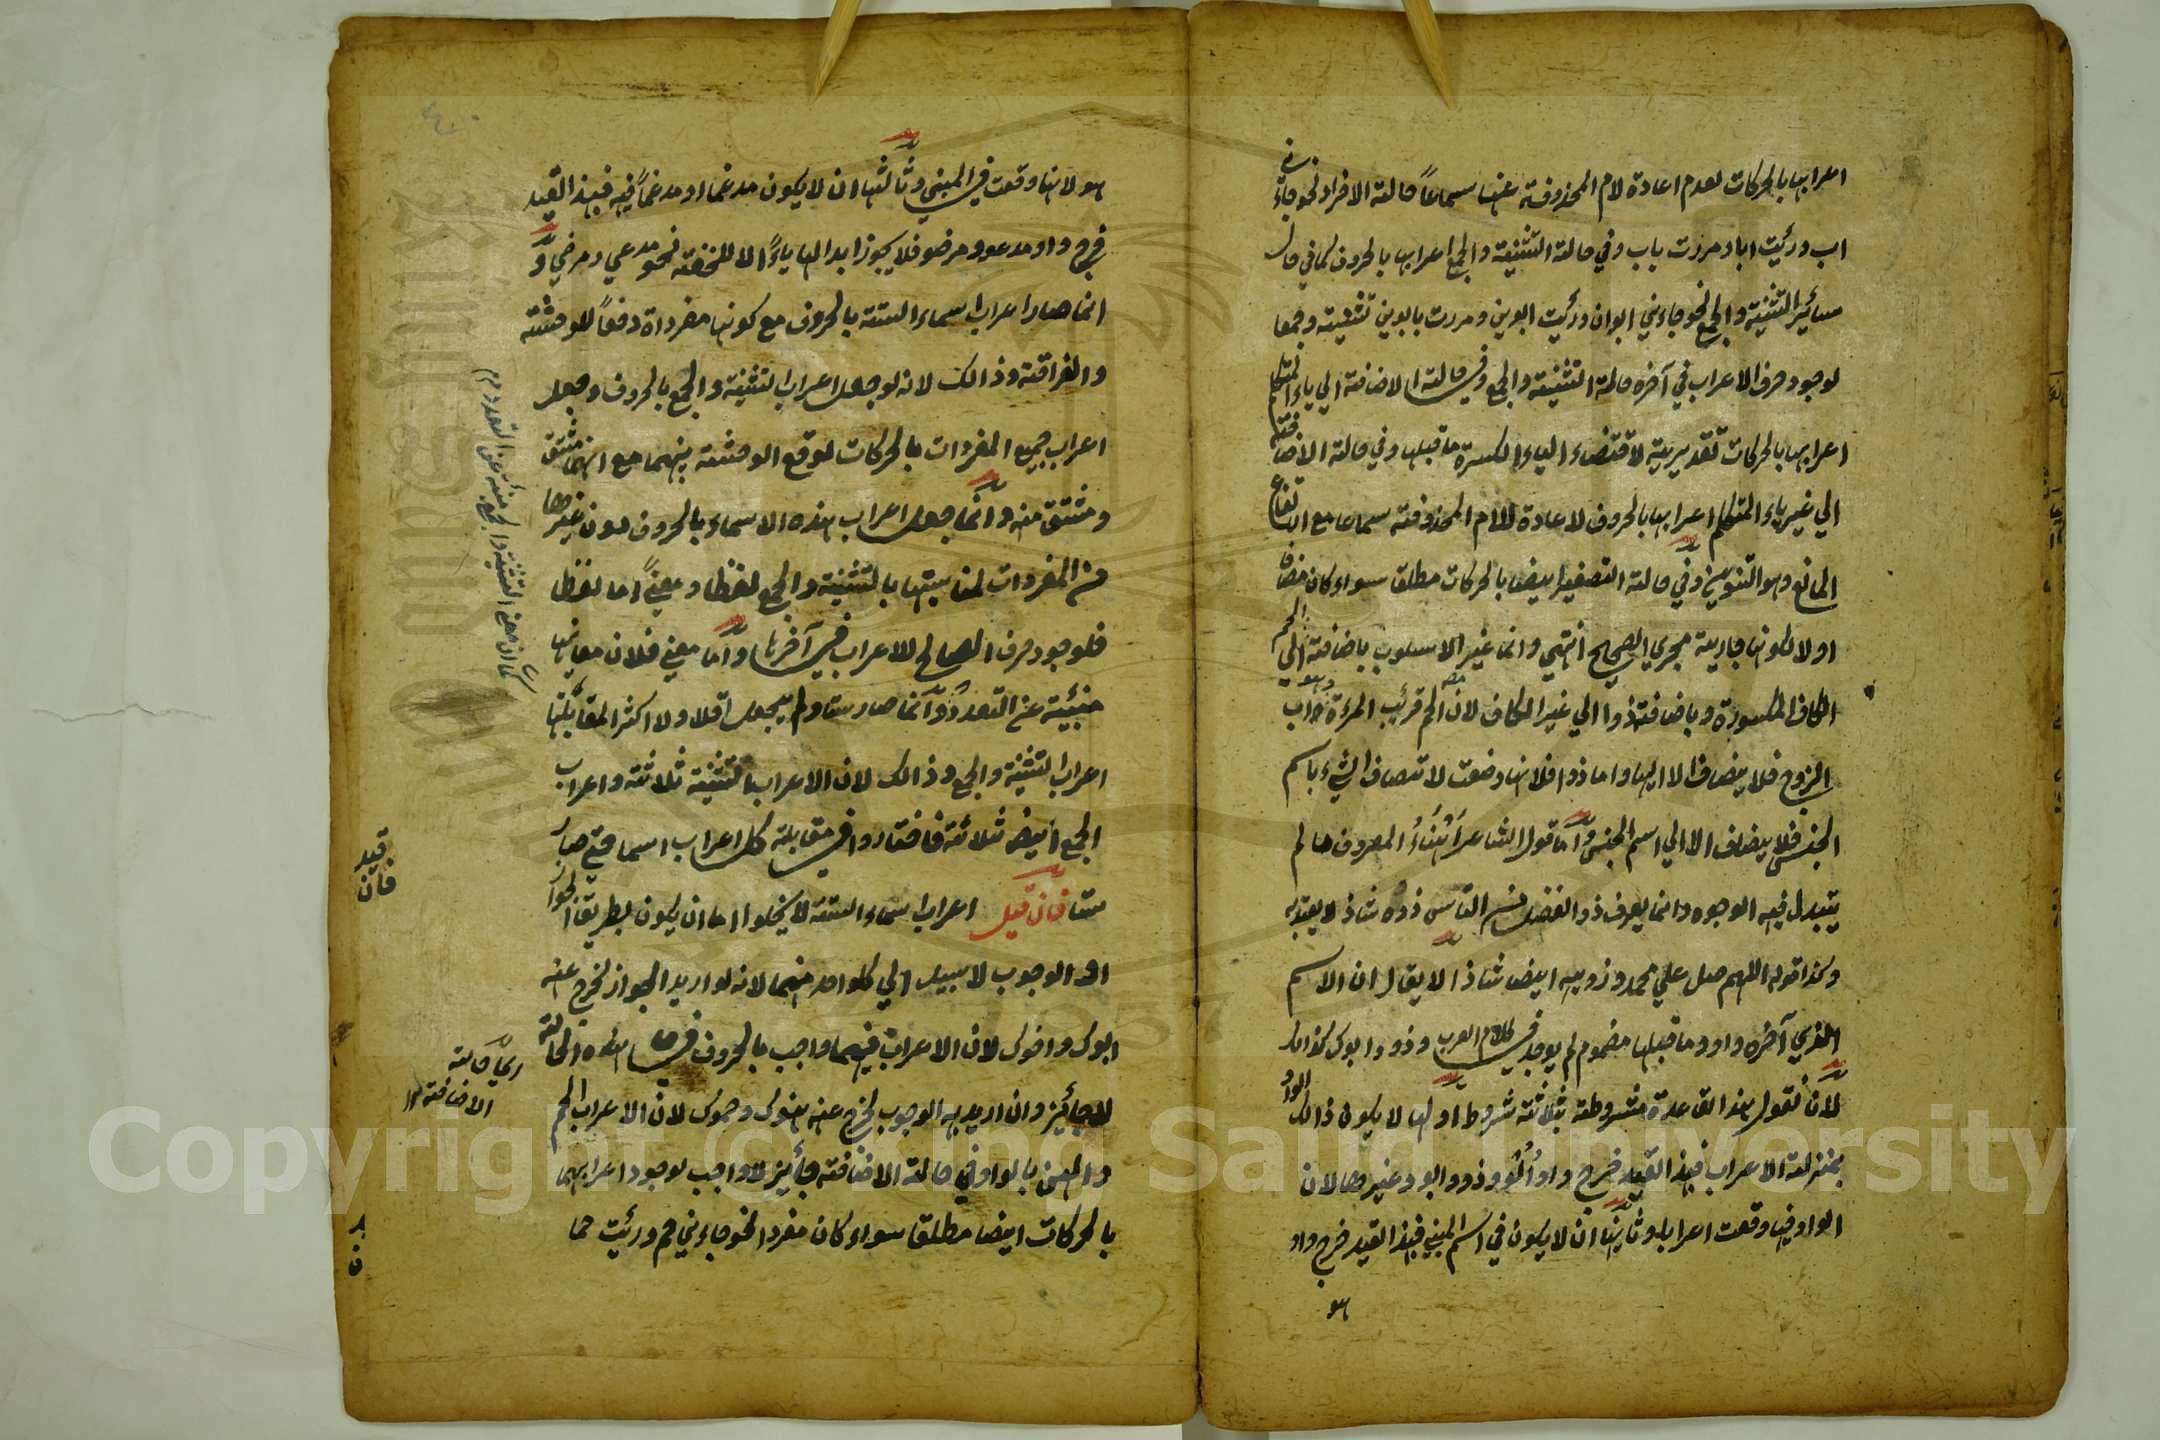 اعرابها بالحركات لعدم اعادة لام المحذوفة عنها سماعاً حالة الافراد نحو جاءني
اب ورئيت ابا ومررت باب وفي حالة التثنية والجمع اعرابها بالحروف كما في حال
سائر التثنية والجمع نحو جاءني ابوان ورئيت ابوين ومررت بابوين تثنية وجمعا
لوجود حرف الاعراب في آخره حالة التثنية والجمع وفي حالة الاضافة الي ياء المتكلم
اعرابها بالحركات تقديرية لاقتضاء الياء الكسرة ما قبلها وفي حالة الاضافة
الي غير ياء المتكلم اعرابها بالحروف لاعادة اللام المحذوفة سماعا مع ارتفاع
المانع وهو التنوين وفي حالة التصغير ايضا بالحركات مطلقا سواء كان مضافا
اولا لكونها جارية مجري الصحيح انتهي وانما غير الاسلوب باضافة الحم الي
الكاف المكسورة وباضافة ذوا الي غير الكاف لان الحم قريب المرءة
الزوج فلا يضاف الا اليها واما ذوا فلانها وضعت لاتصاف الشيء باسم
الجنس فلا يضاف الا الي اسم الجنس واما قول الشاعر المعروف ما لم
يتبدل فيه الوجوه وانما يعرف ذو الفضل من الناس ذوه شاذ لا يعتد به
وكذا قوله اللهم صل علي محمد وذويه ايضا شاذ الا يقال ان الاسم
الذي آخره واو وما قبلها مضموم لم يوجد في كلام العرب وذو وابوك كذالك
لان نقول هذا القاعدة مشروطة بثلاثة شروط اولها لا يكون ذالك الواو
بمنزلة الاعراب فبهذا القيد خرج واو ألو وذو وابو وغيرها لان
الواو فيها وقعت اعرابا وثانيها ان لا يكون في اسم المبني فبهذا القيد خرج واو
هو
هو لانها وقعت في المبني وثالثها ان لا يكون مدغما او مدغماً فيه فبهذا القيد
خرج واو مدعو ومرضو فلا يجوز ابدالها ياءً الا للخفة نحو مدعي ومرضي و
انما صار اعراب اسماء الستة بالحروف مع كونها مفرداة دفعاً للوحشة
والفراقة وذالك لانه لو جعل اعراب التثنية والجمع بالحروف وجعل
اعراب جميع المفردات بالحركات لوقع الوحشة بينهما مع انهما مشتق
ومشتق منه وانما جعل اعراب هذه الاسماء بالحروف دون غيرها
من المفردات لمناسبتها بالتثنية والجمع لفظا ومعنيً اما لفظا
فلوجود حرف الصالح للاعراب في آخرها واما معني فلان معانيها
منبئة عن التعدد وانما صار ستا ولم يجعل اقلا ولا اكثر المقابلتها
اعراب التثنية والجمع وذالك لان الاعراب التثنية ثلاثة واعراب
الجمع ايضا ثلاثة فاختاروا في مقابلة كل اعراب اسما حتي صار
ستا فان قيل اعراب اسماء الستة لا يخلوا اما ان يكون بطريق الجواز
او الوجوب لا سبيل الي كلواحد منهما لانه لو اريد الجواز لخرج عنه
ابوك واخوك لان الاعراب فيهما واجب بالحروف في هذه الحالة
لا جائيز وان اريد به الوجوب لخرج عنه هنوك وحموك لان الاعراب الحم
والهن بالواو في حالة الاضافة جائيز لا واجب لوجود اعرابهما
بالحركات ايضا مطلقا سواء كان مفردا نحو جاءني حم ورئيت حما
كما ان معني التثنية والجمع منبئة عن التعدد
اي حالة
الاضافة
قيد
فان
Copyright © King Saud University